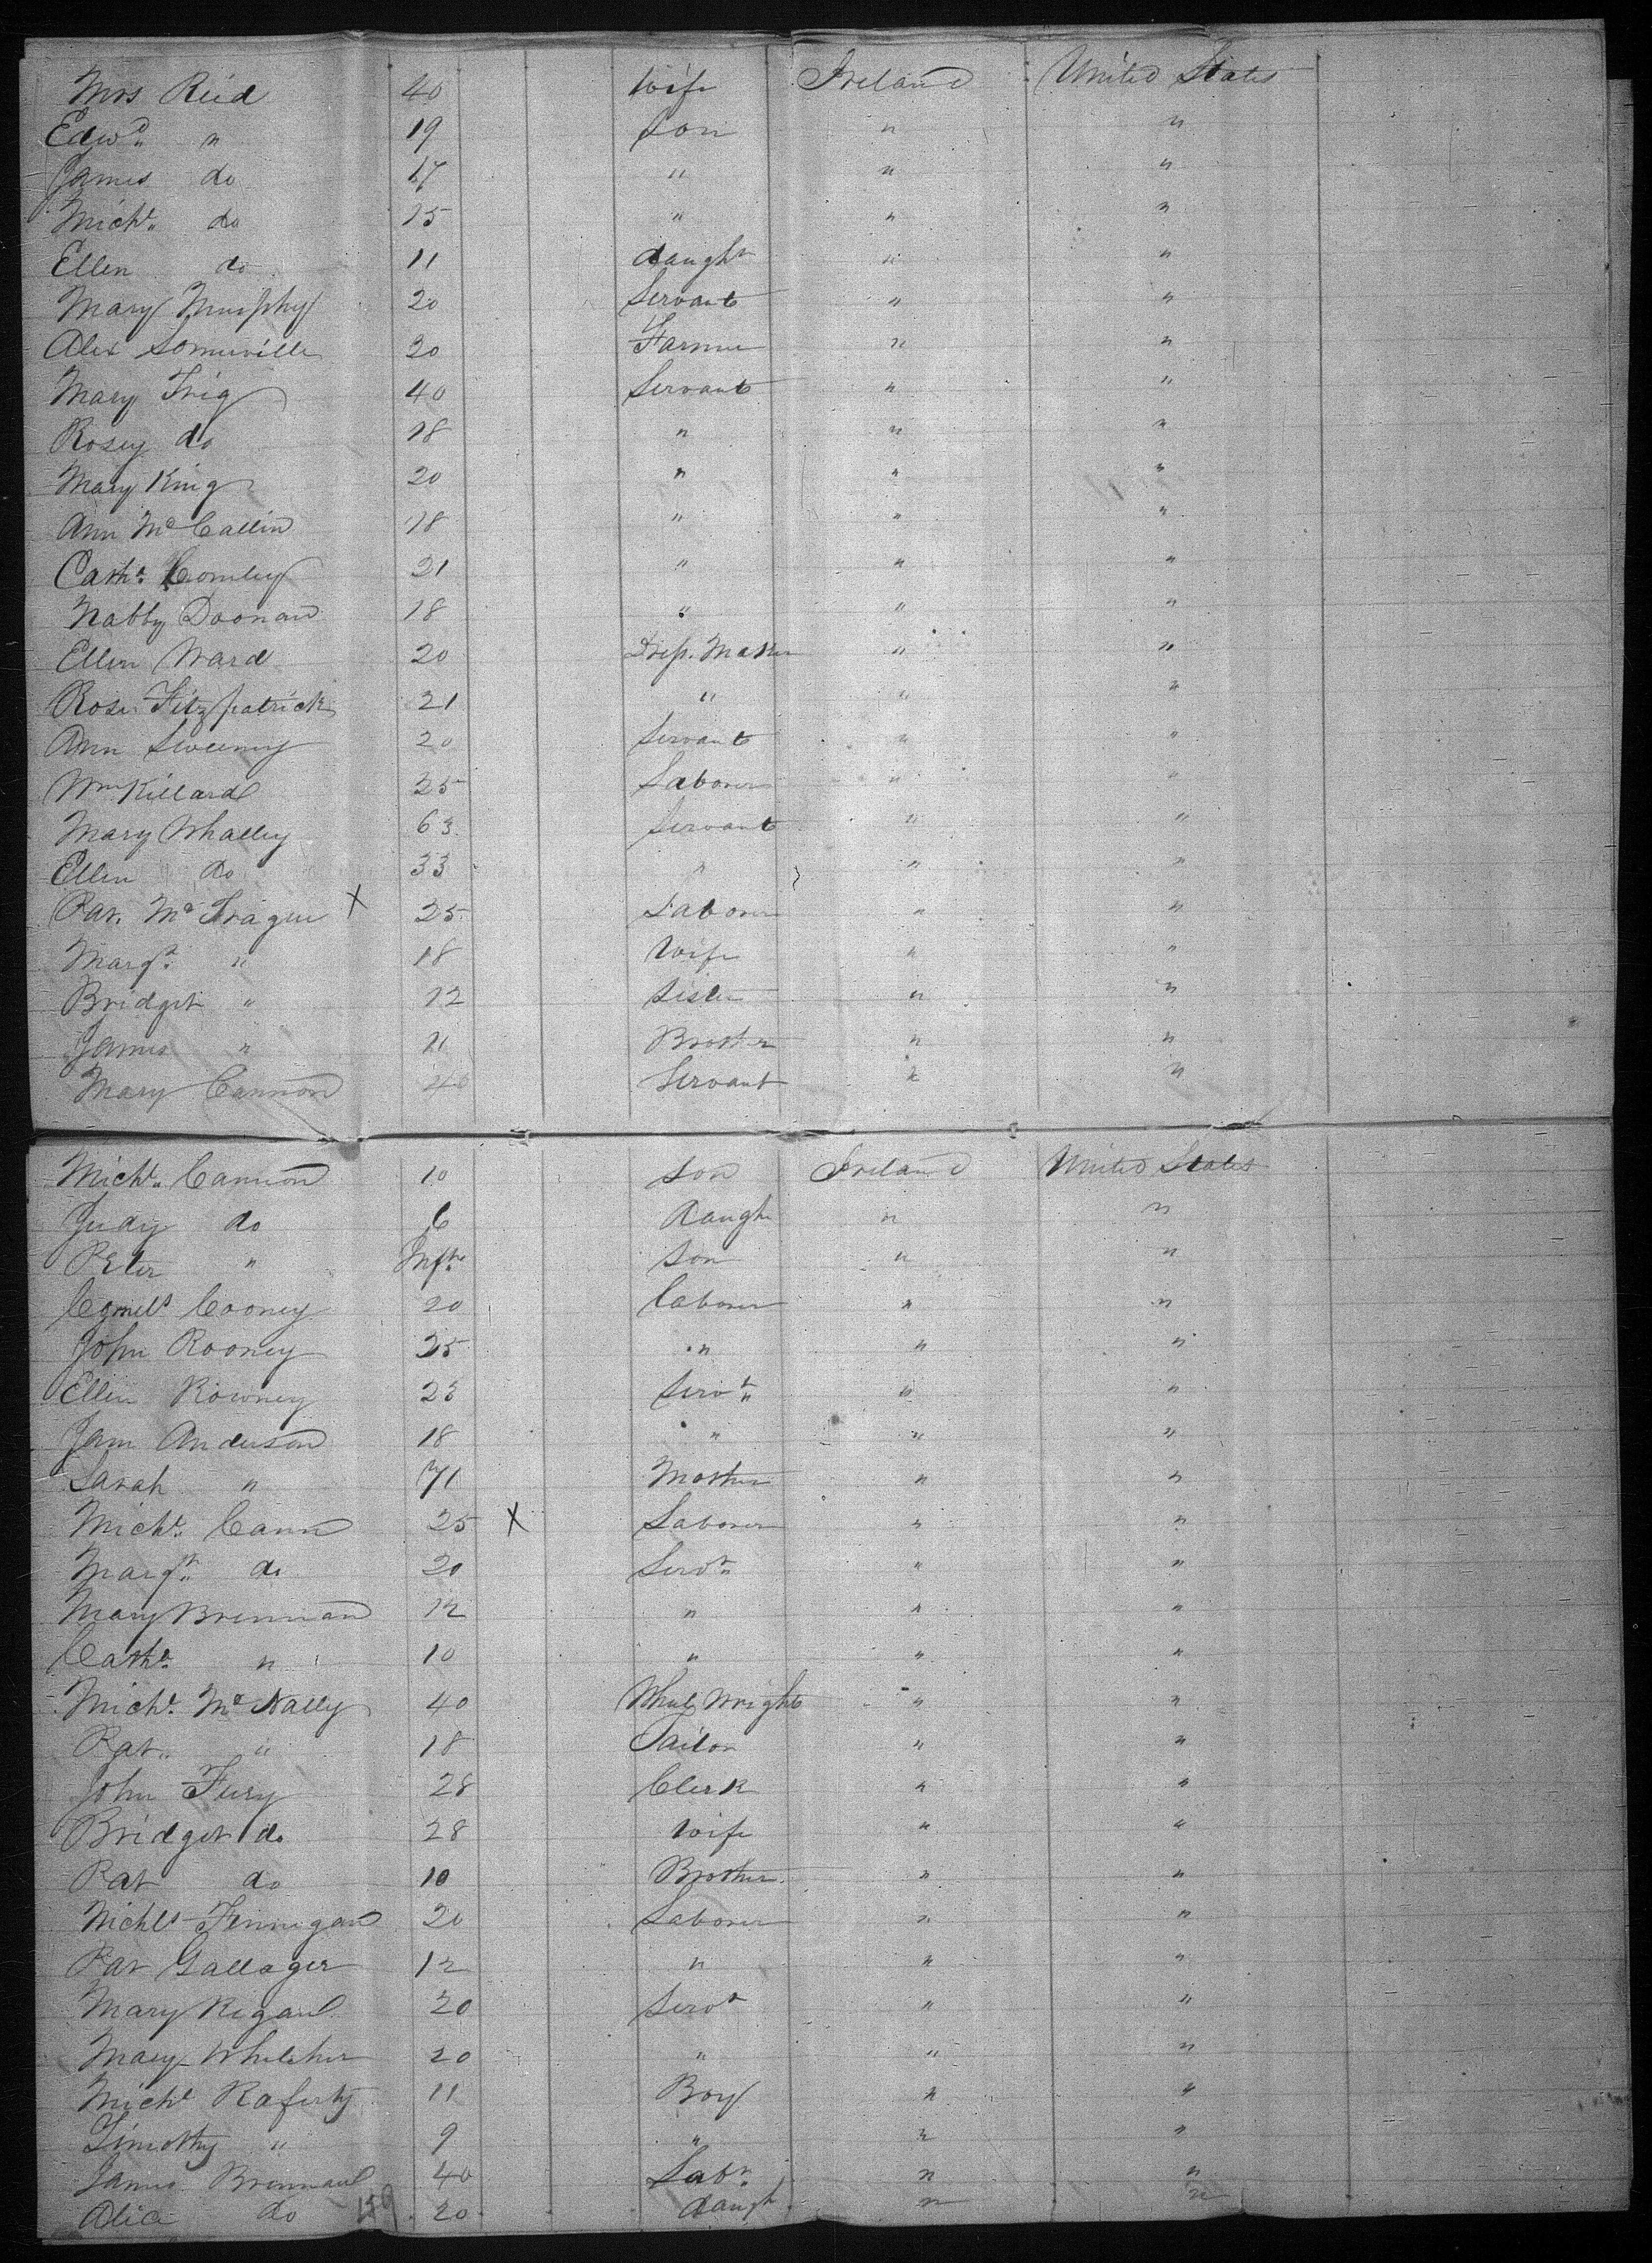 Mrs Reid 40 Wife Ireland United States
Edwd " 19 Son " "
James do 17 " " "
Michl. do 15 " " "
Ellen do 11 daught " "
Mary Murphy 20 Servant " "
Alex Somerville 20 Farmer " "
Mary Trig 40 Servant " "
Rosey do 18 " " "
Mary King 20 " " "
Ann McCallin 18 " " "
Cathe. Comley 21 " " "
Nabby Doonan 18 " " "
Ellen Ward 20 Dress Maker " "
Rose Fitzpatrick 21 " " "
Ann Sweeney 20 Servant " "
Wm Killard 25 Laborer " "
Mary Whalley 63 Servant " "
Ellen do 33 " " "
Pat. McTrague X 25 Laborer " "
Margt. " 18 Wife " "
Bridget " 12 Sister " "
James " 11 Brother " "
Mary Cannon 40 Servant " "
Michl. Cannon 10 Son Ireland United States
Judy do 6 Daugh " "
Peter " Inft. Son " "
Cornels Cooney 20 Laborer " "
John Rooney 25 " " "
Ellen Rowney 23 Servt. " "
Jam Anderson 18 " " "
Sarah " 71 Mother " "
Michl. Cann 25 X Laborer " "
Margt. do 20 Servt. " "
Mary Brennan 12 " " "
Cathe. " 10 " " "
Michl. McNally 40 Wheel Wright " "
Pat. " 18 Tailor " "
John Fury 28 Clerk " "
Bridget do 28 Wife " "
Pat do 10 Brother " "
Nichls Finnigan 20 Laborer " "
Pat Gallager 12 " " "
Mary Regan 20 Servt " "
Mary 20 " " "
Michl Raferty 11 Boy " "
Timothy " 9 " " "
James Brennan 40 Labr. " "
Alice do 159 20 daugh " "